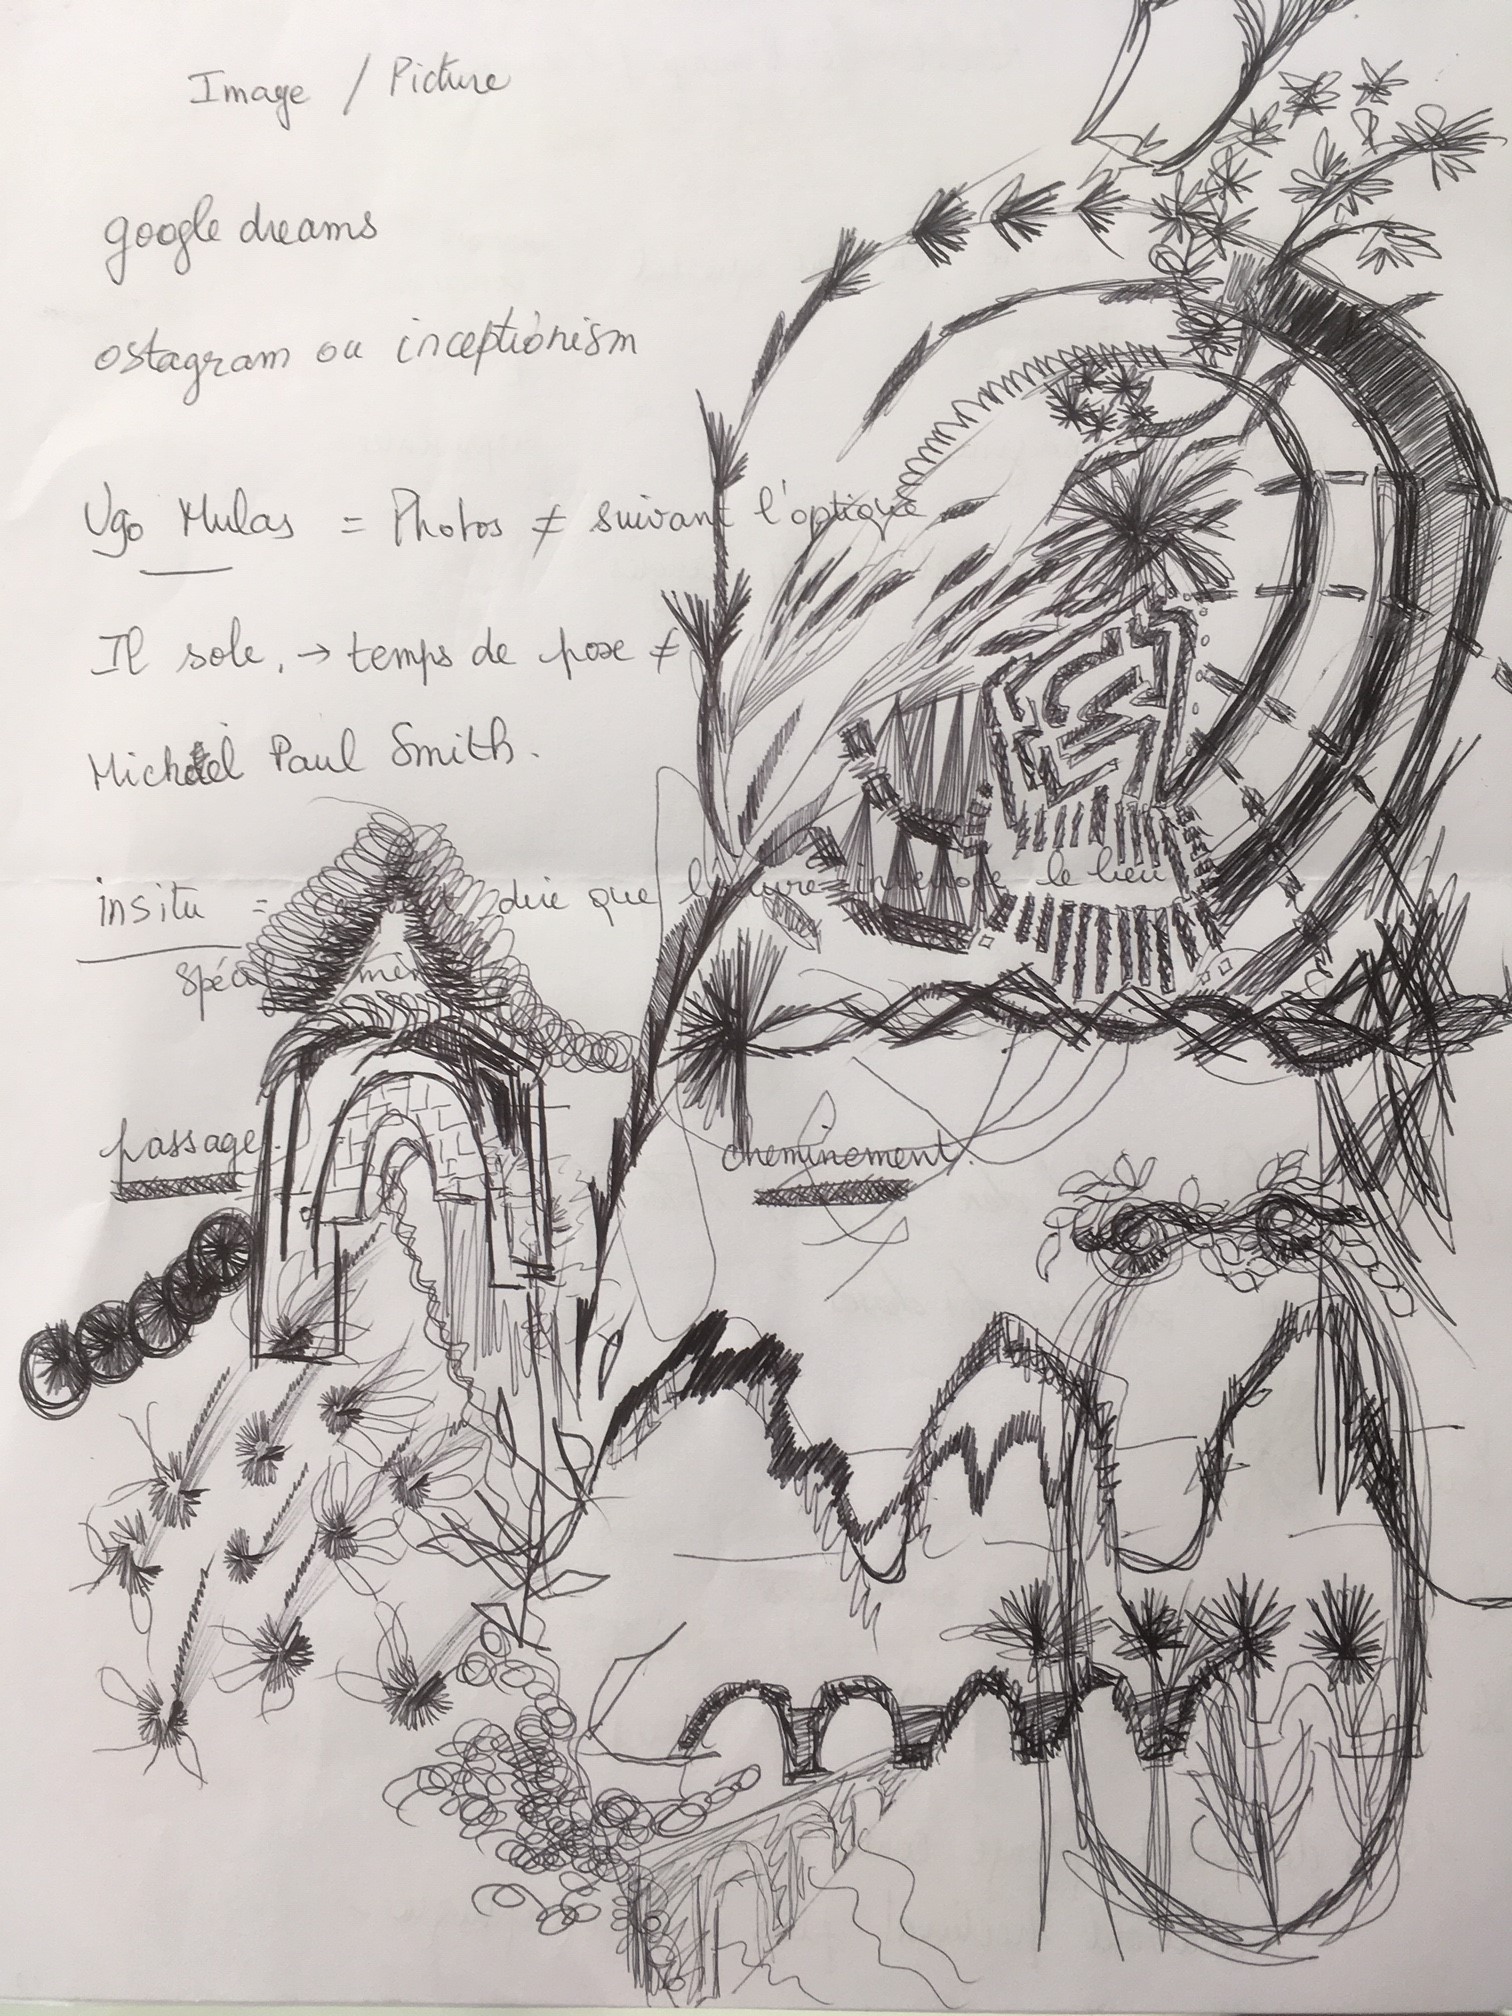 Image / Picture
google dreams
ostagram ou inceptionism
Ugo Mulas = Photos ≠ suivant l'optique
Il sole, → temps de pose ≠
Michael Paul Smith.
insitu = dire que le lieu
passage.
cheminement.